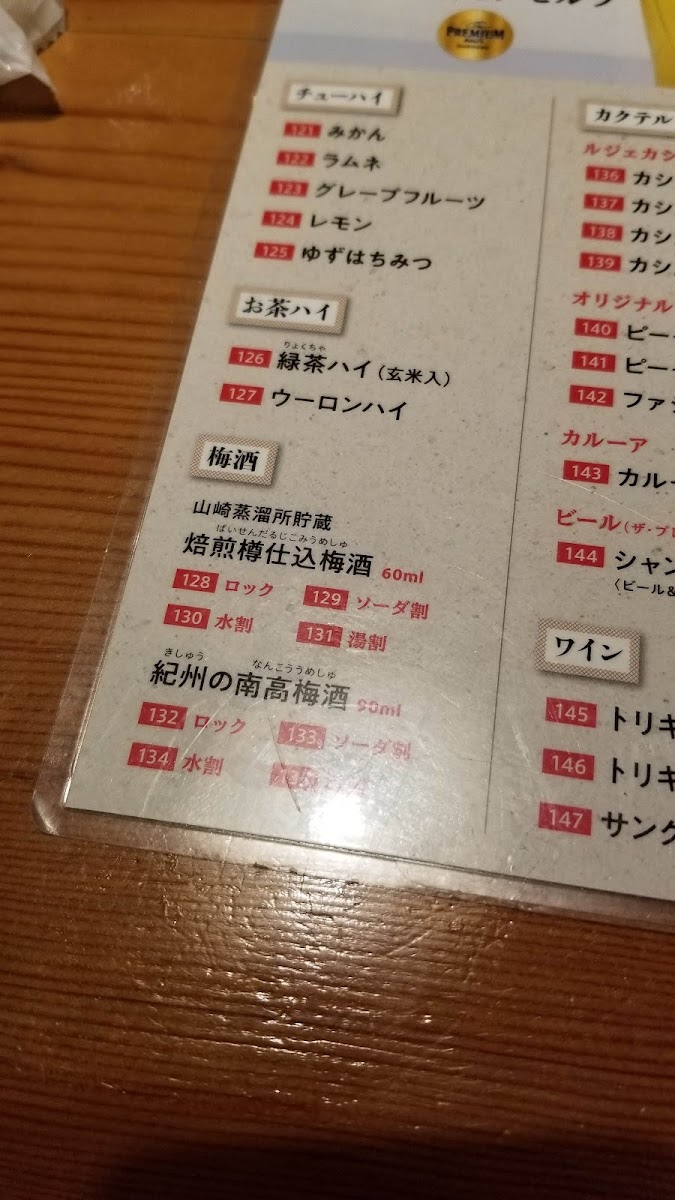 PREMIUM
チューハイ
121 みかん
122 ラムネ
123 グレープフルーツ
124 レモン
125 ゆずはちみつ
お茶ハイ
りょくちゃ
126 緑茶ハイ(玄米入)
127 ウーロンハイ
梅酒
山崎蒸溜所貯蔵
ばいせんだるじこみうめしゅ
焙煎樽仕込梅酒 60ml
128 ロック 129 ソーダ割
130 水割 131 湯割
きしゅう なんこううめしゅ
紀州の南高梅酒 90ml
132 ロック 133 ソーダ割
134 水割
カクテル
ルジェカシ
136 カシ
137 カシ
138 カシ
139 カシ
オリジナル
140 ピー
141 ピー
142 ファ
カルーア
143 カルー
ビール(ザ・プレ
144 シャン
〈ビール&
ワイン
145 トリキ
146 トリキ
147 サング